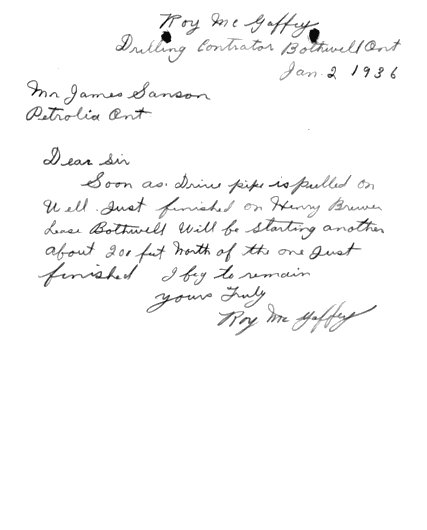 Roy Mc Gaffey
Drilling Contrator Bothwell Ont
Jan. 2 1936
Mr James Sanson
Petrolia Ont
Dear Sir
Soon as Drive pipe is pulled on
Well Just finished on Henry Brewer
Lease Bothwell Will be starting another
about 200 feet North of the one Just
finished I beg to remain
yours Truly
Roy Mc Gaffey